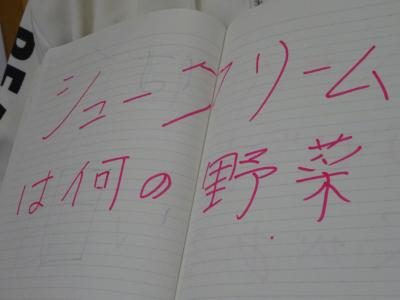 シュークリーム
は何の野菜